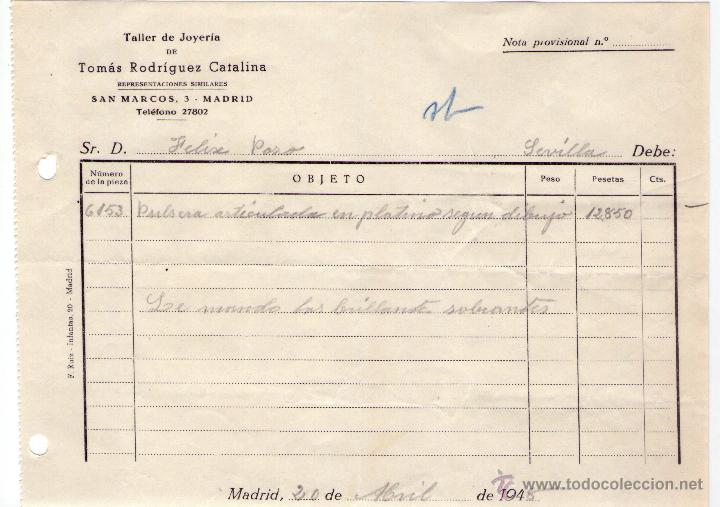 Taller de Joyería
DE
Tomás Rodríguez Catalina
REPRESENTACIONES SIMILARES
SAN MARCOS, 3 - MADRID
Teléfono 27802
Nota provisional n.º
Sr. D. Felix Pozo Sevilla Debe:
Número de la pieza OBJETO Peso Pesetas Cts.
6153 Pulsera articulada en platino segun dibujo 12850
Se mando los brillante sobrantes
F. Ruiz - Infantas, 20 - Madrid
Madrid, 20 de Abril de 1948
www.todocoleccion.net